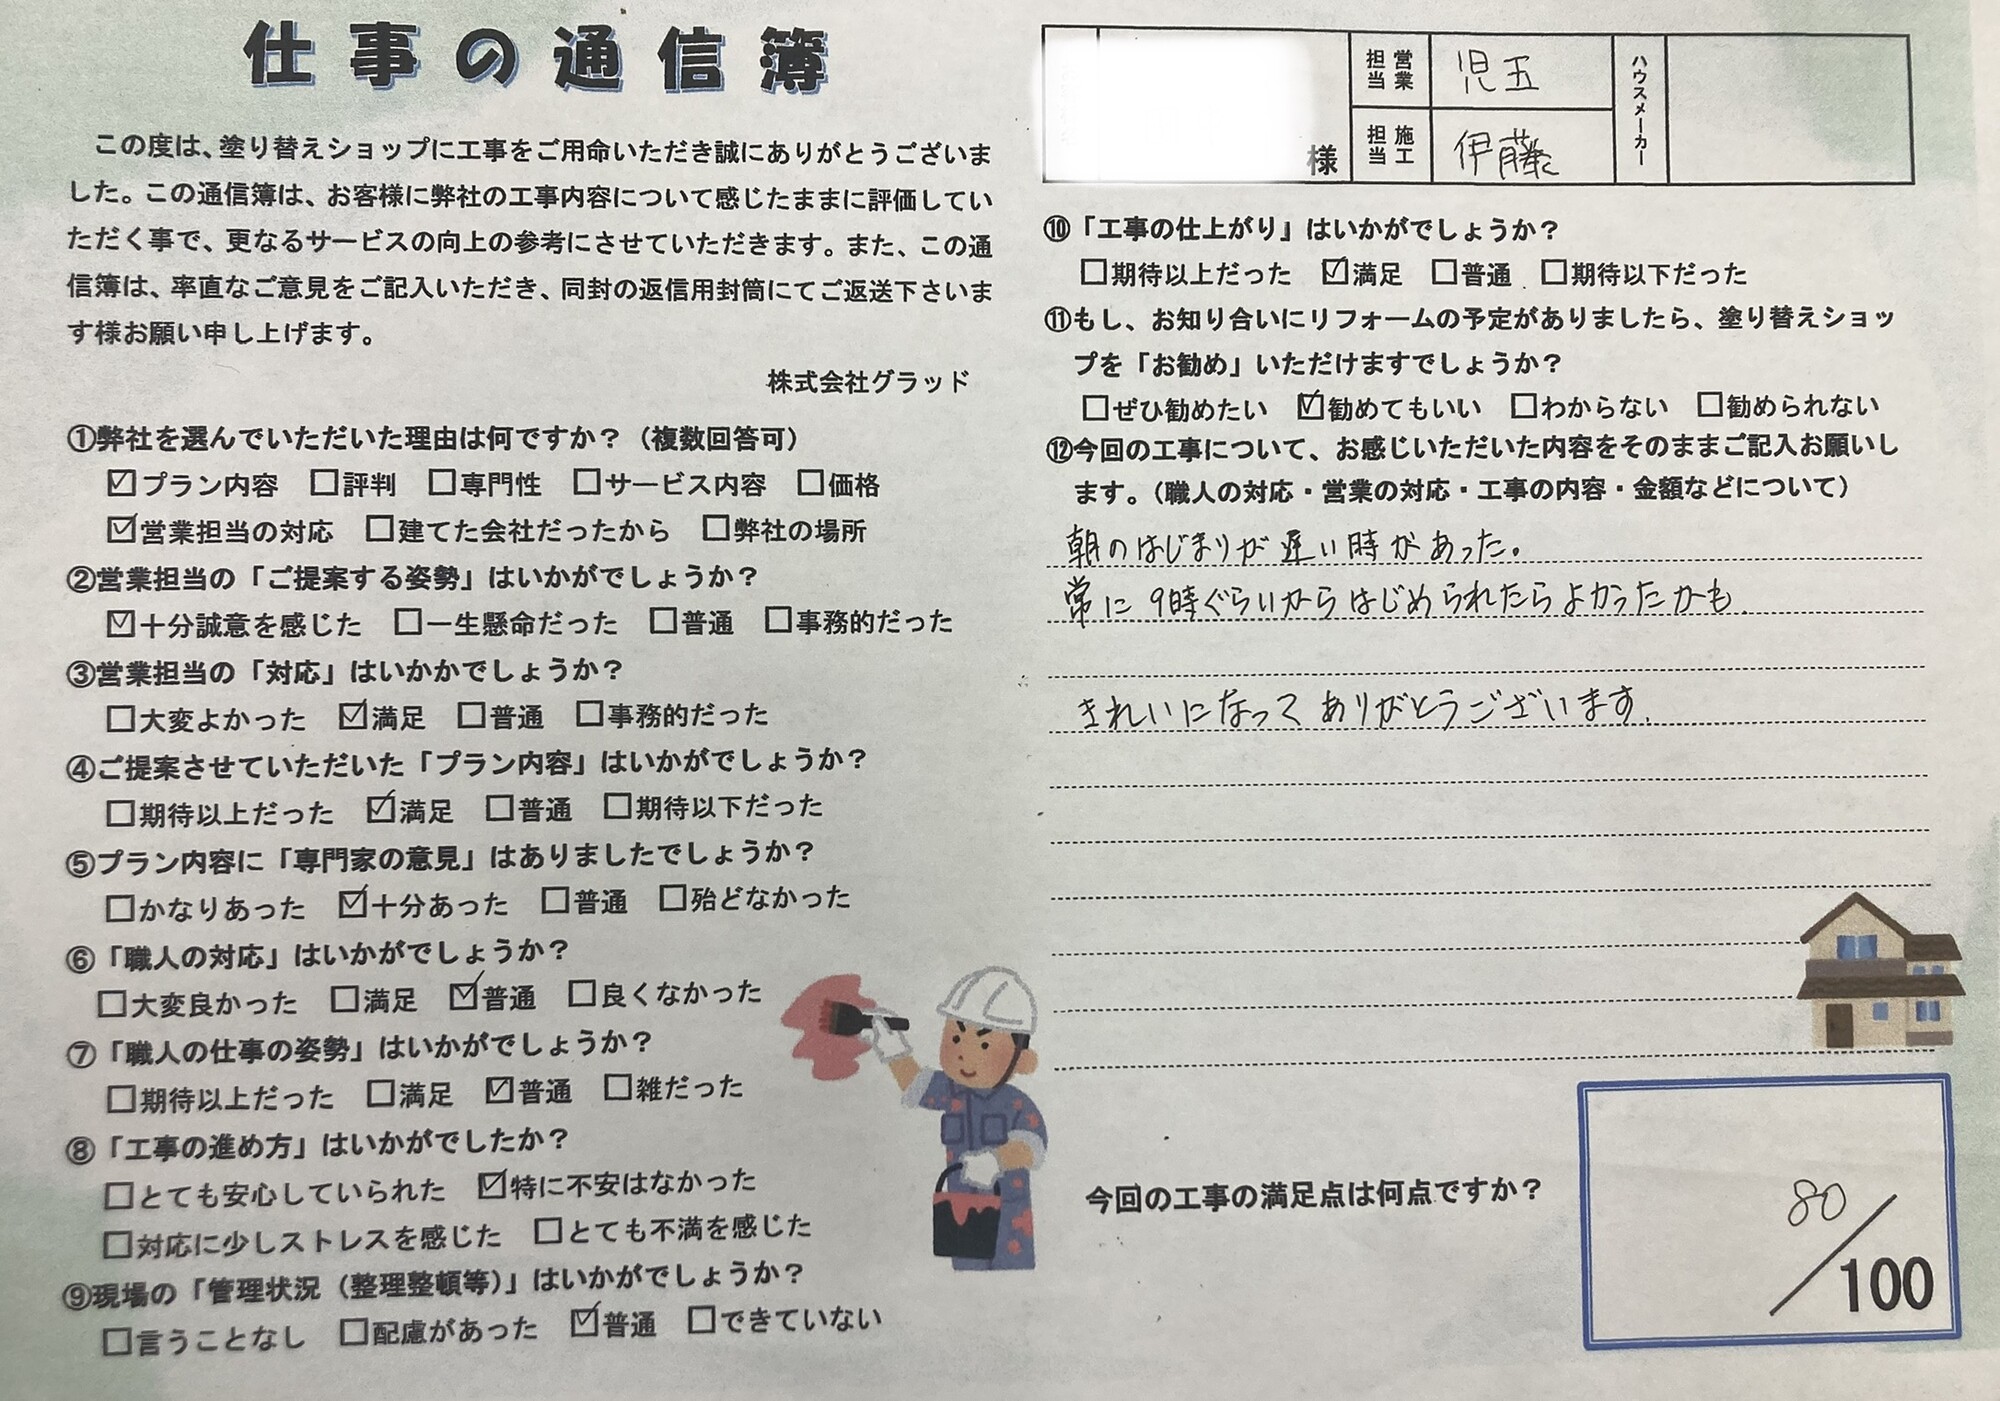 仕事の通信簿
この度は、塗り替えショップに工事をご用命いただき誠にありがとうございま
した。この通信簿は、お客様に弊社の工事内容について感じたままに評価してい
ただく事で、更なるサービスの向上の参考にさせていただきます。また、この通
信簿は、率直なご意見をご記入いただき、同封の返信用封筒にてご返送下さいま
す様お願い申し上げます。
株式会社グラッド
①弊社を選んでいただいた理由は何ですか？（複数回答可）
☑プラン内容 □評判 □専門性 □サービス内容 □価格
☑営業担当の対応 □建てた会社だったから □弊社の場所
②営業担当の「ご提案する姿勢」はいかがでしょうか？
☑十分誠意を感じた □一生懸命だった □普通 □事務的だった
③営業担当の「対応」はいかかでしょうか？
□大変よかった ☑満足 □普通 □事務的だった
④ご提案させていただいた「プラン内容」はいかがでしょうか？
□期待以上だった ☑満足 □普通 □期待以下だった
⑤プラン内容に「専門家の意見」はありましたでしょうか？
□かなりあった ☑十分あった □普通 □殆どなかった
⑥「職人の対応」はいかがでしょうか？
□大変良かった □満足 ☑普通 □良くなかった
⑦「職人の仕事の姿勢」はいかがでしょうか？
□期待以上だった □満足 ☑普通 □雑だった
⑧「工事の進め方」はいかがでしたか？
□とても安心していられた ☑特に不安はなかった
□対応に少しストレスを感じた □とても不満を感じた
⑨現場の「管理状況（整理整頓等）」はいかがでしょうか？
□言うことなし □配慮があった ☑普通 □できていない
様
営業担当 児玉
施工担当 伊藤
ハウスメーカー
⑩「工事の仕上がり」はいかがでしょうか？
□期待以上だった ☑満足 □普通 □期待以下だった
⑪もし、お知り合いにリフォームの予定がありましたら、塗り替えショッ
プを「お勧め」いただけますでしょうか？
□ぜひ勧めたい ☑勧めてもいい □わからない □勧められない
⑫今回の工事について、お感じいただいた内容をそのままご記入お願いし
ます。（職人の対応・営業の対応・工事の内容・金額などについて）
朝のはじまりが遅い時があった。
常に9時ぐらいからはじめられたらよかったかも.
きれいになってありがとうございます.
今回の工事の満足点は何点ですか？
80/100